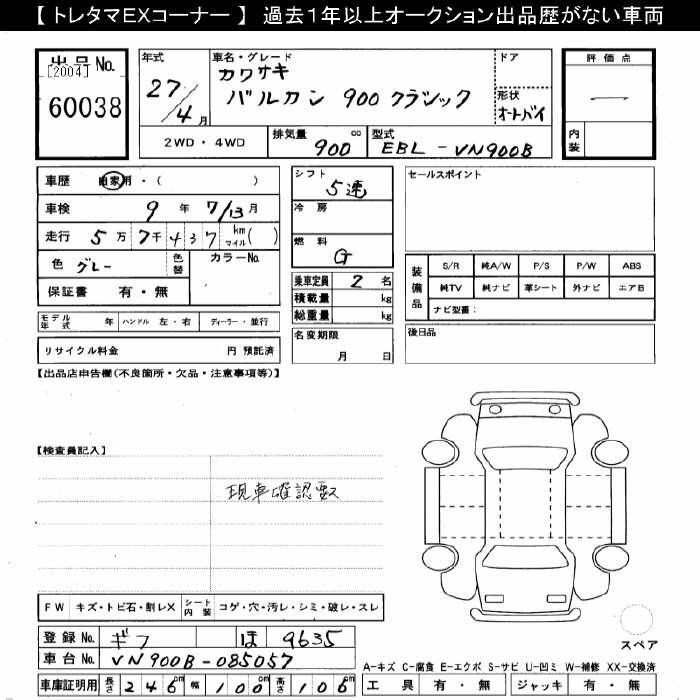 【 トレタマEXコーナー 】 過去1年以上オークション出品歴がない車両
出品 No.
[2004]
60038
年式 27/4月
車名・グレード
カワサキ
バルカン 900 クラシック
ドア
形状
オートバイ
評価点
内装
2WD・4WD
排気量 900 cc
型式 EBL-VN900B
車歴 自家用・( )
車検 9年 7/13月
走行 5万 7千 4 3 7 km マイル( )
色 グレー 色替 カラーNo.
保証書 有・無
シフト 5速
冷房
燃料 G
乗車定員 2 名
積載量 kg
総重量 kg
名変期限 月 日
セールスポイント
装備品
S/R 純A/W P/S P/W ABS
純TV 純ナビ 革シート 外ナビ エアB
ナビ型番：
後日品
モデル年式 年 ハンドル 左・右 ディーラー・並行
リサイクル料金 円 預託済
【出品店申告欄(不良箇所・欠品・注意事項等)】
【検査員記入】
現車確認要ス
FW キズ・トビ石・割レX シート内装 コゲ・穴・汚レ・シミ・破レ・スレ
登録No. ギフ ほ 9635
車台No. VN900B-085057
車庫証明用 長さ 246cm 幅 100cm 高さ 106cm
スペア
A-キズ C-腐食 E-エクボ S-サビ U-凹ミ W-補修 XX-交換済
工具 有・無 ジャッキ 有・無